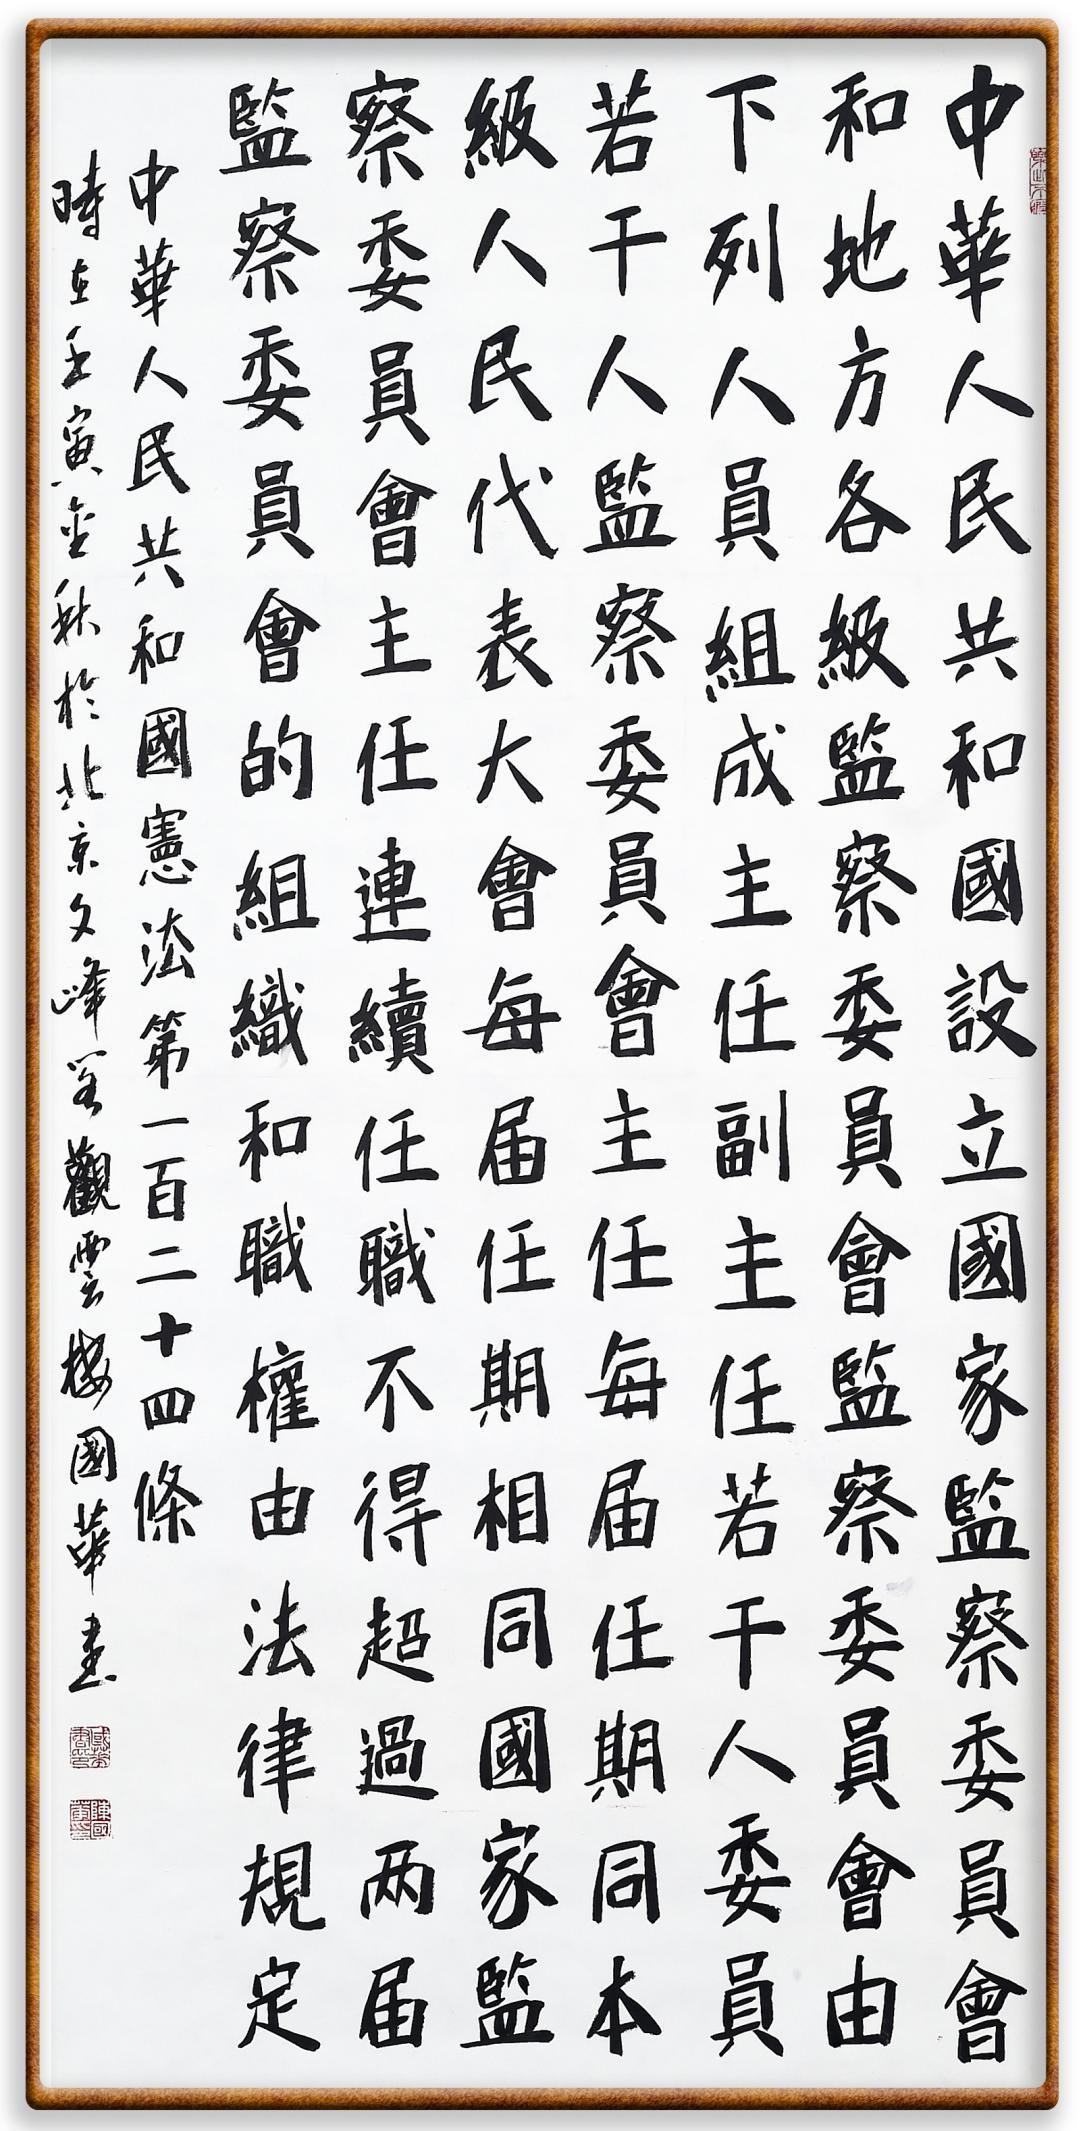 中華人民共和國設立國家監察委員會
和地方各級監察委員會監察委員會由
下列人員組成主任副主任若干人委員
若干人監察委員會主任每届任期同本
級人民代表大會每届任期相同國家監
察委員會主任連續任職不得超過两届
監察委員會的組織和職權由法律規定
中華人民共和國憲法第一百二十四條
時在壬寅金秋於北京文峰閣觀雲樓國華書